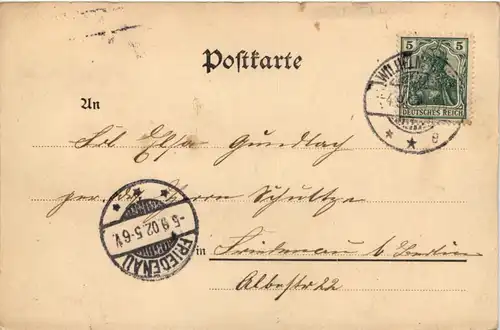 Postkarte
5
DEUTSCHES REICH
An
Frl Elsa Gundlach
per adr Herrn Schultze
FRIEDENAU
-5.9.02.5-6V.
in Friedenau b/Berlin
Albestr 22